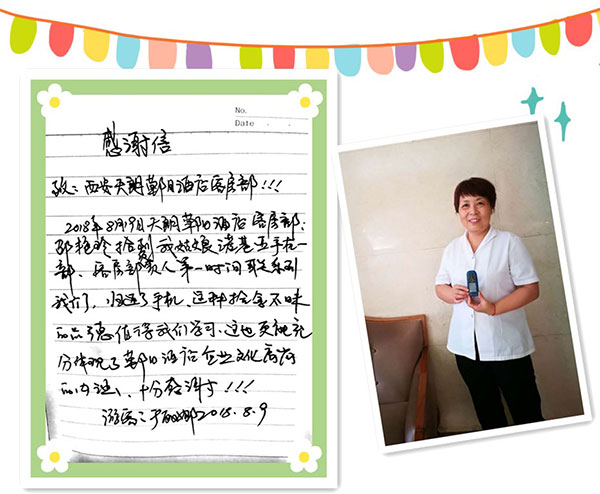 No.
Date
感谢信
致:西安天朗 日酒店客房部!!!
2018年8月9日天朗 日酒店客房部,
捡到我姑娘诺基亚手机一
部、客房部 人第一时间联系到
我们,归还了手机,这种拾金不昧
的品德值得我们学习,这也更 充
分体现了 日酒店企业文化
的内涵、十分感谢!!!
游客: 2018.8.9